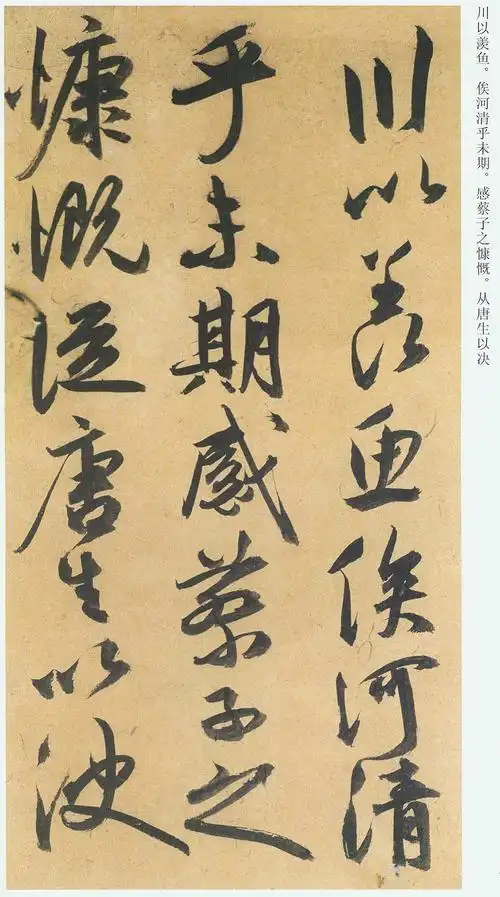 川以羡鱼。俟河清乎未期。感蔡子之慷慨。从唐生以决
川以羡鱼俟河清
乎未期感蔡子之
慷慨从唐生以决